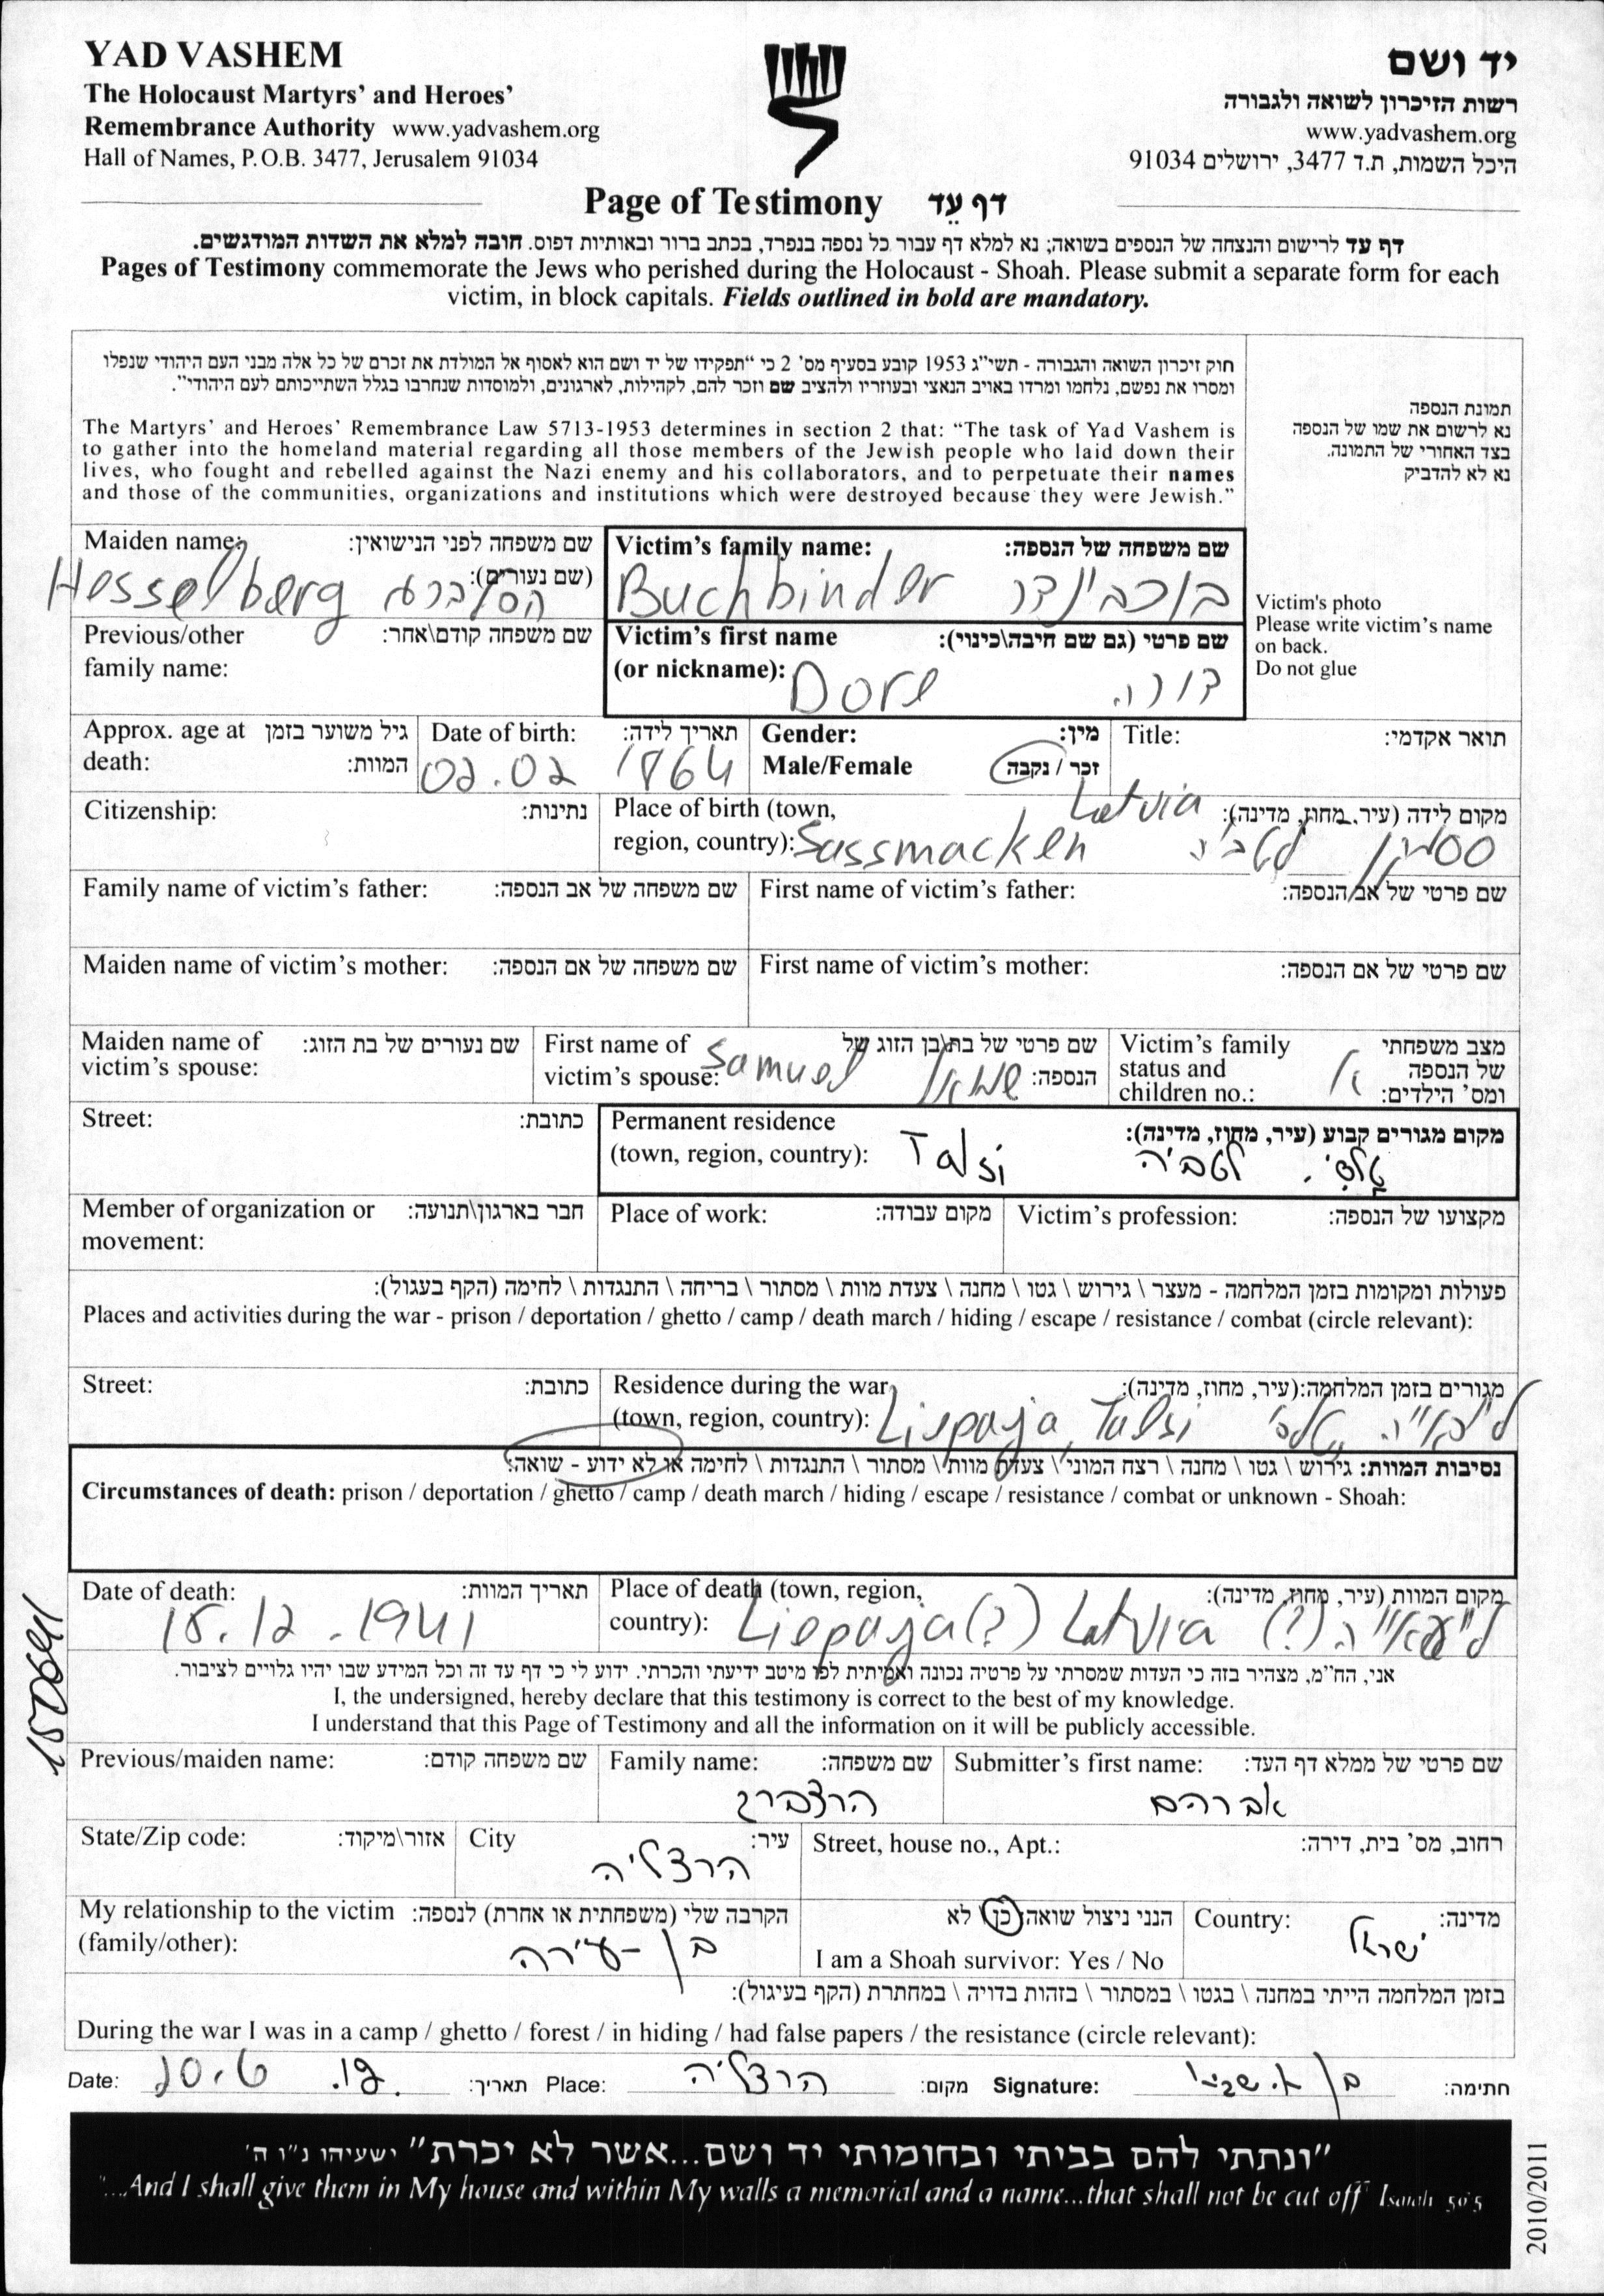 YAD VASHEM
The Holocaust Martyrs' and Heroes'
Remembrance Authority www.yadvashem.org
Hall of Names, P.O.B. 3477, Jerusalem 91034
יד ושם
רשות הזיכרון לשואה ולגבורה
www.yadvashem.org
היכל השמות, ת.ד 3477, ירושלים 91034
Page of Testimony דף עֵד
דף עד לרישום והנצחה של הנספים בשואה; נא למלא דף עבור כל נספה בנפרד, בכתב ברור ובאותיות דפוס. חובה למלא את השדות המודגשים.
Pages of Testimony commemorate the Jews who perished during the Holocaust - Shoah. Please submit a separate form for each
victim, in block capitals. Fields outlined in bold are mandatory.
חוק זיכרון השואה והגבורה - תשי"ג 1953 קובע בסעיף מס' 2 כי "תפקידו של יד ושם הוא לאסוף אל המולדת את זכרם של כל אלה מבני העם היהודי שנפלו
ומסרו את נפשם, נלחמו ומרדו באויב הנאצי ובעוזריו ולהציב שם וזכר להם, לקהילות, לארגונים, ולמוסדות שנחרבו בגלל השתייכותם לעם היהודי".
The Martyrs' and Heroes' Remembrance Law 5713-1953 determines in section 2 that: "The task of Yad Vashem is
to gather into the homeland material regarding all those members of the Jewish people who laid down their
lives, who fought and rebelled against the Nazi enemy and his collaborators, and to perpetuate their names
and those of the communities, organizations and institutions which were destroyed because they were Jewish."
תמונת הנספה
נא לרשום את שמו של הנספה
בצד האחורי של התמונה.
נא לא להדביק
Victim's photo
Please write victim's name
on back.
Do not glue
Maiden name: שם משפחה לפני הנישואין:
(שם נעורים):
Hesselberg הסלברג
Victim's family name: שם משפחה של הנספה:
Buchbinder בוכבינדר
Previous/other שם משפחה קודם\אחר:
family name:
Victim's first name שם פרטי (גם שם חיבה\כינוי):
(or nickname): Dore דורה
Approx. age at גיל משוער בזמן
death: המוות:
Date of birth: תאריך לידה:
02.02 1864
Gender: מין:
Male/Female זכר / נקבה
Title: תואר אקדמי:
Citizenship: נתינות:
Place of birth (town, Latvia מקום לידה (עיר, מחוז, מדינה):
region, country): Sassmacken סס­מקן לטביה
Family name of victim's father: שם משפחה של אב הנספה:
First name of victim's father: שם פרטי של אב הנספה:
Maiden name of victim's mother: שם משפחה של אם הנספה:
First name of victim's mother: שם פרטי של אם הנספה:
Maiden name of שם נעורים של בת הזוג:
victim's spouse:
First name of שם פרטי של בת\בן הזוג של
victim's spouse: Samuel שמואל הנספה:
Victim's family מצב משפחתי
status and של הנספה
children no.: ומס' הילדים:
Street: כתובת:
Permanent residence מקום מגורים קבוע (עיר, מחוז, מדינה):
(town, region, country): Talsi טלסי. לטביה
Member of organization or חבר בארגון\תנועה:
movement:
Place of work: מקום עבודה:
Victim's profession: מקצועו של הנספה:
פעולות ומקומות בזמן המלחמה - מעצר \ גירוש \ גטו \ מחנה \ צעדת מוות \ מסתור \ בריחה \ התנגדות \ לחימה (הקף בעגול):
Places and activities during the war - prison / deportation / ghetto / camp / death march / hiding / escape / resistance / combat (circle relevant):
Street: כתובת:
Residence during the war מגורים בזמן המלחמה:(עיר, מחוז, מדינה):
(town, region, country): Liepaja, Talsi ליפאיה, טלסי
נסיבות המוות: גירוש \ גטו \ מחנה \ רצח המוני \ צעדת מוות \ מסתור \ התנגדות \ לחימה או לא ידוע - שואה:
Circumstances of death: prison / deportation / ghetto / camp / death march / hiding / escape / resistance / combat or unknown - Shoah:
Date of death: תאריך המוות:
15.12.1941
Place of death (town, region, מקום המוות (עיר, מחוז, מדינה):
country): Liepaja(?) Latvia ליפאייה (?)
אני, הח"מ, מצהיר בזה כי העדות שמסרתי על פרטיה נכונה ואמיתית לפי מיטב ידיעתי והכרתי. ידוע לי כי דף עד זה וכל המידע שבו יהיו גלויים לציבור.
I, the undersigned, hereby declare that this testimony is correct to the best of my knowledge.
I understand that this Page of Testimony and all the information on it will be publicly accessible.
Previous/maiden name: שם משפחה קודם:
Family name: שם משפחה:
הרצברג
Submitter's first name: שם פרטי של ממלא דף העד:
אברהם
State/Zip code: אזור\מיקוד:
City עיר:
הרצליה
Street, house no., Apt.: רחוב, מס' בית, דירה:
My relationship to the victim הקרבה שלי (משפחתית או אחרת) לנספה:
(family/other): בן-עירה
הנני ניצול שואה כן \ לא
I am a Shoah survivor: Yes / No
Country: מדינה:
ישראל
בזמן המלחמה הייתי במחנה \ בגטו \ במסתור \ בזהות בדויה \ במחתרת (הקף בעיגול):
During the war I was in a camp / ghetto / forest / in hiding / had false papers / the resistance (circle relevant):
Date: תאריך: Place: הרצליה מקום: Signature: חתימה:
"ונתתי להם בביתי ובחומותי יד ושם...אשר לא יכרת" ישעיהו נ"ו ה'
"...And I shall give them in My house and within My walls a memorial and a name...that shall not be cut off" Isaiah 56:5
2010/2011